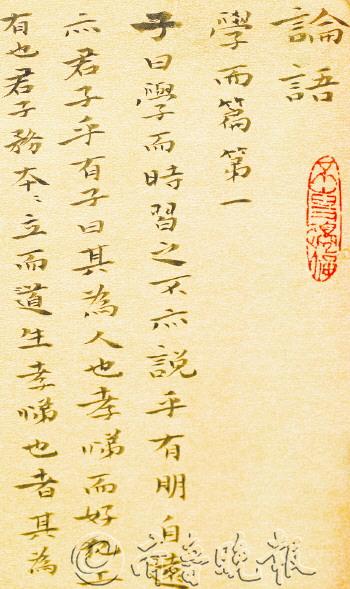 論語
學而篇第一
子曰學而時習之不亦說乎有朋自遠
亦君子乎有子曰其為人也孝悌而好犯上
有也君子務本〻立而道生孝悌也者其為
©齊魯晚報